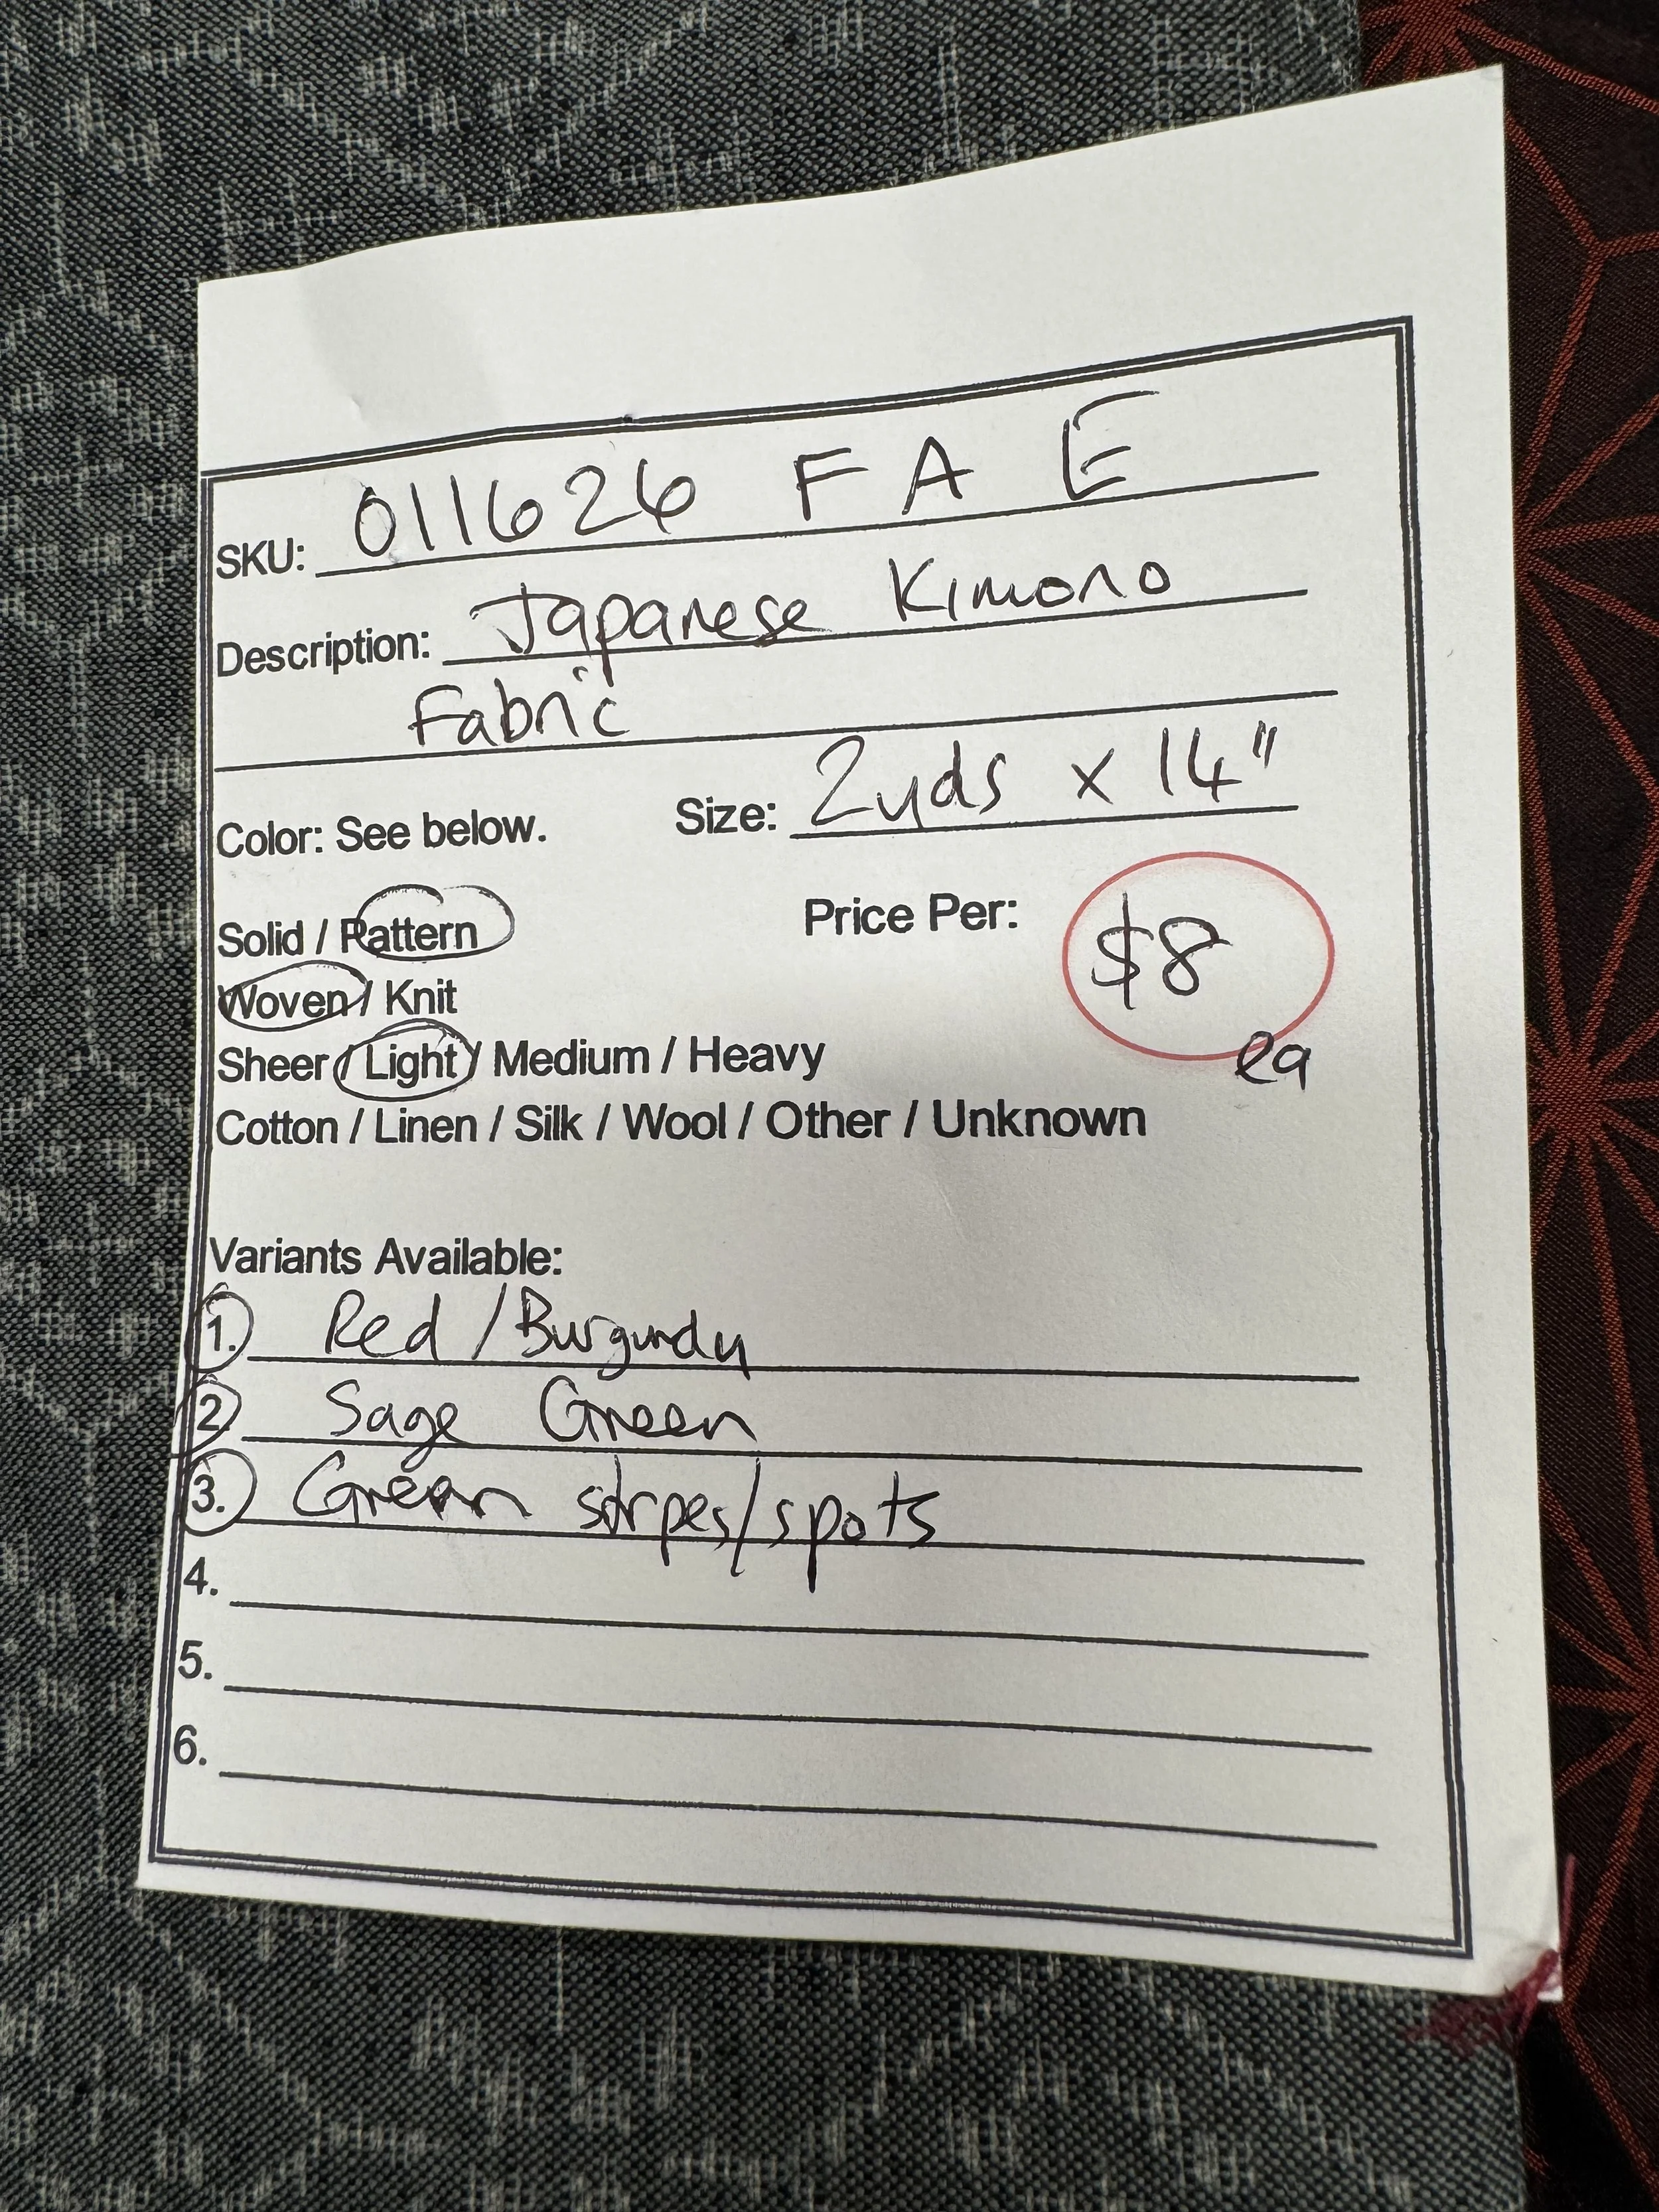 SKU: 011626 F A E
Description: Japanese Kimono
Fabric
Color: See below. Size: 2yds x 14"
Solid / Pattern Price Per: $8
Woven / Knit
Sheer / Light / Medium / Heavy ea
Cotton / Linen / Silk / Wool / Other / Unknown
Variants Available:
1. Red / Burgundy
2. Sage Green
3. Green strpes/spots
4.
5.
6.